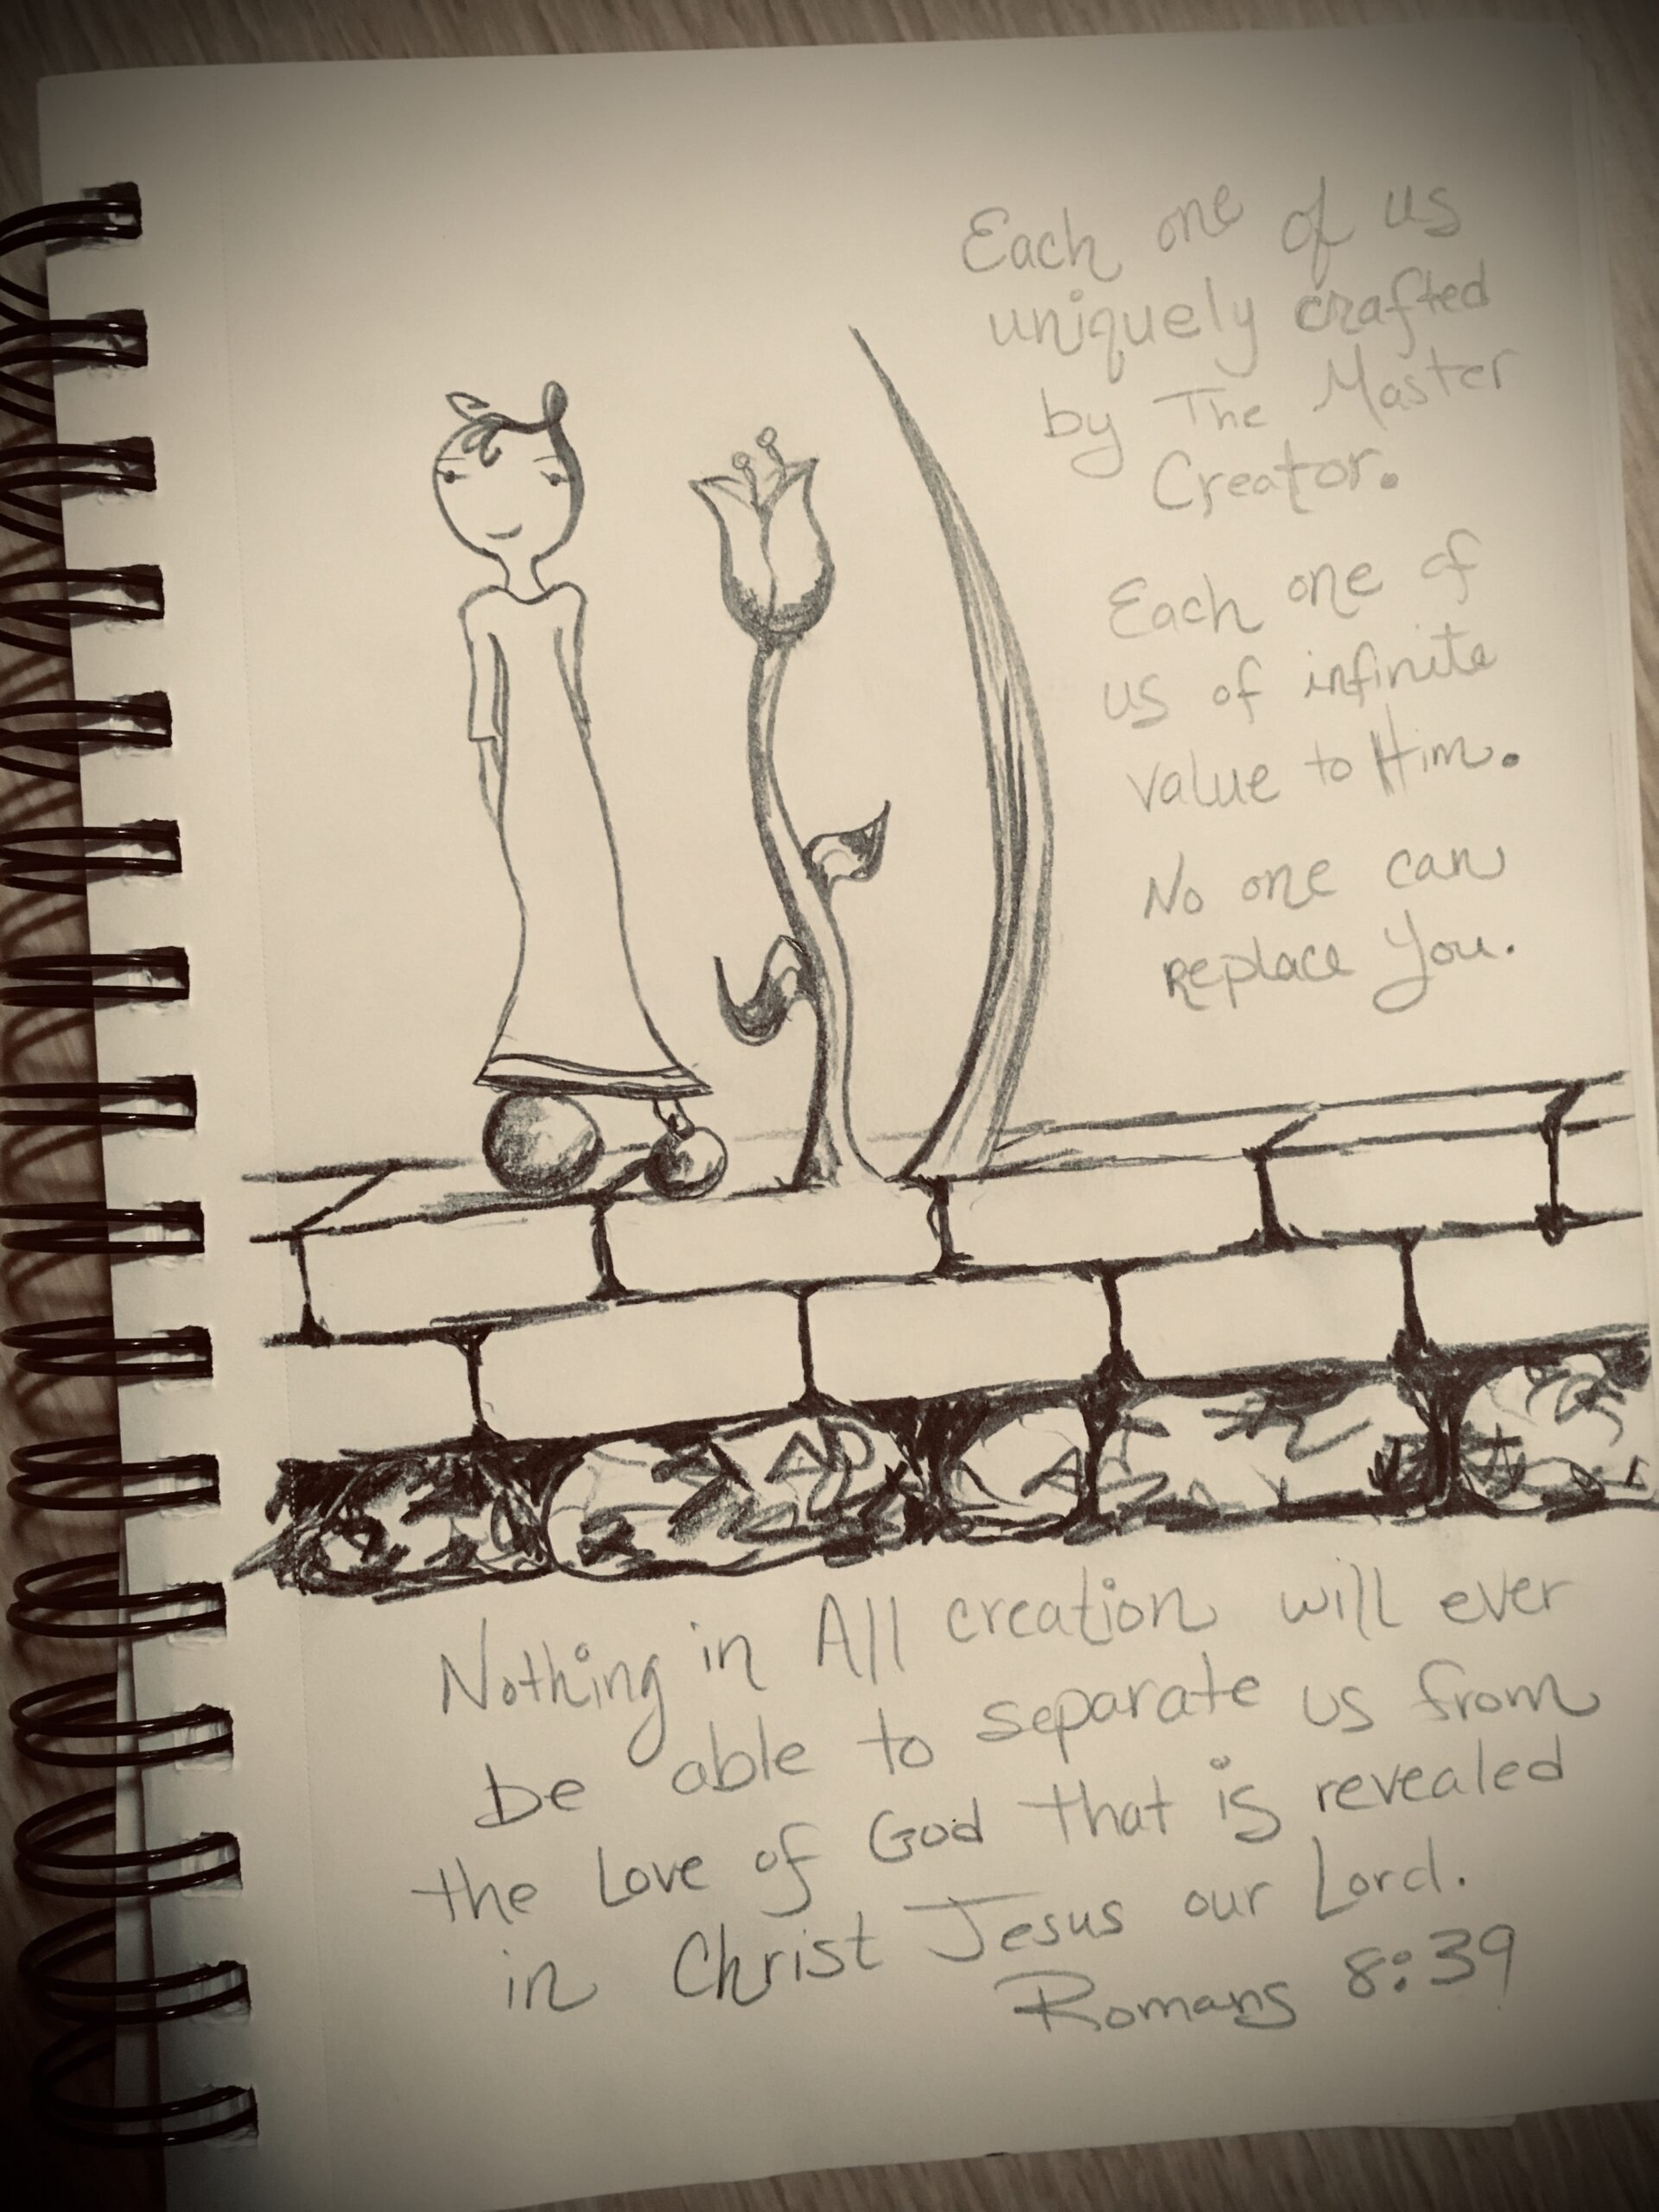 Each one of us
uniquely crafted
by The Master
Creator.
Each one of
us of infinite
value to Him.
No one can
replace You.
Nothing in All creation will ever
be able to separate us from
the Love of God that is revealed
in Christ Jesus our Lord.
Romans 8:39